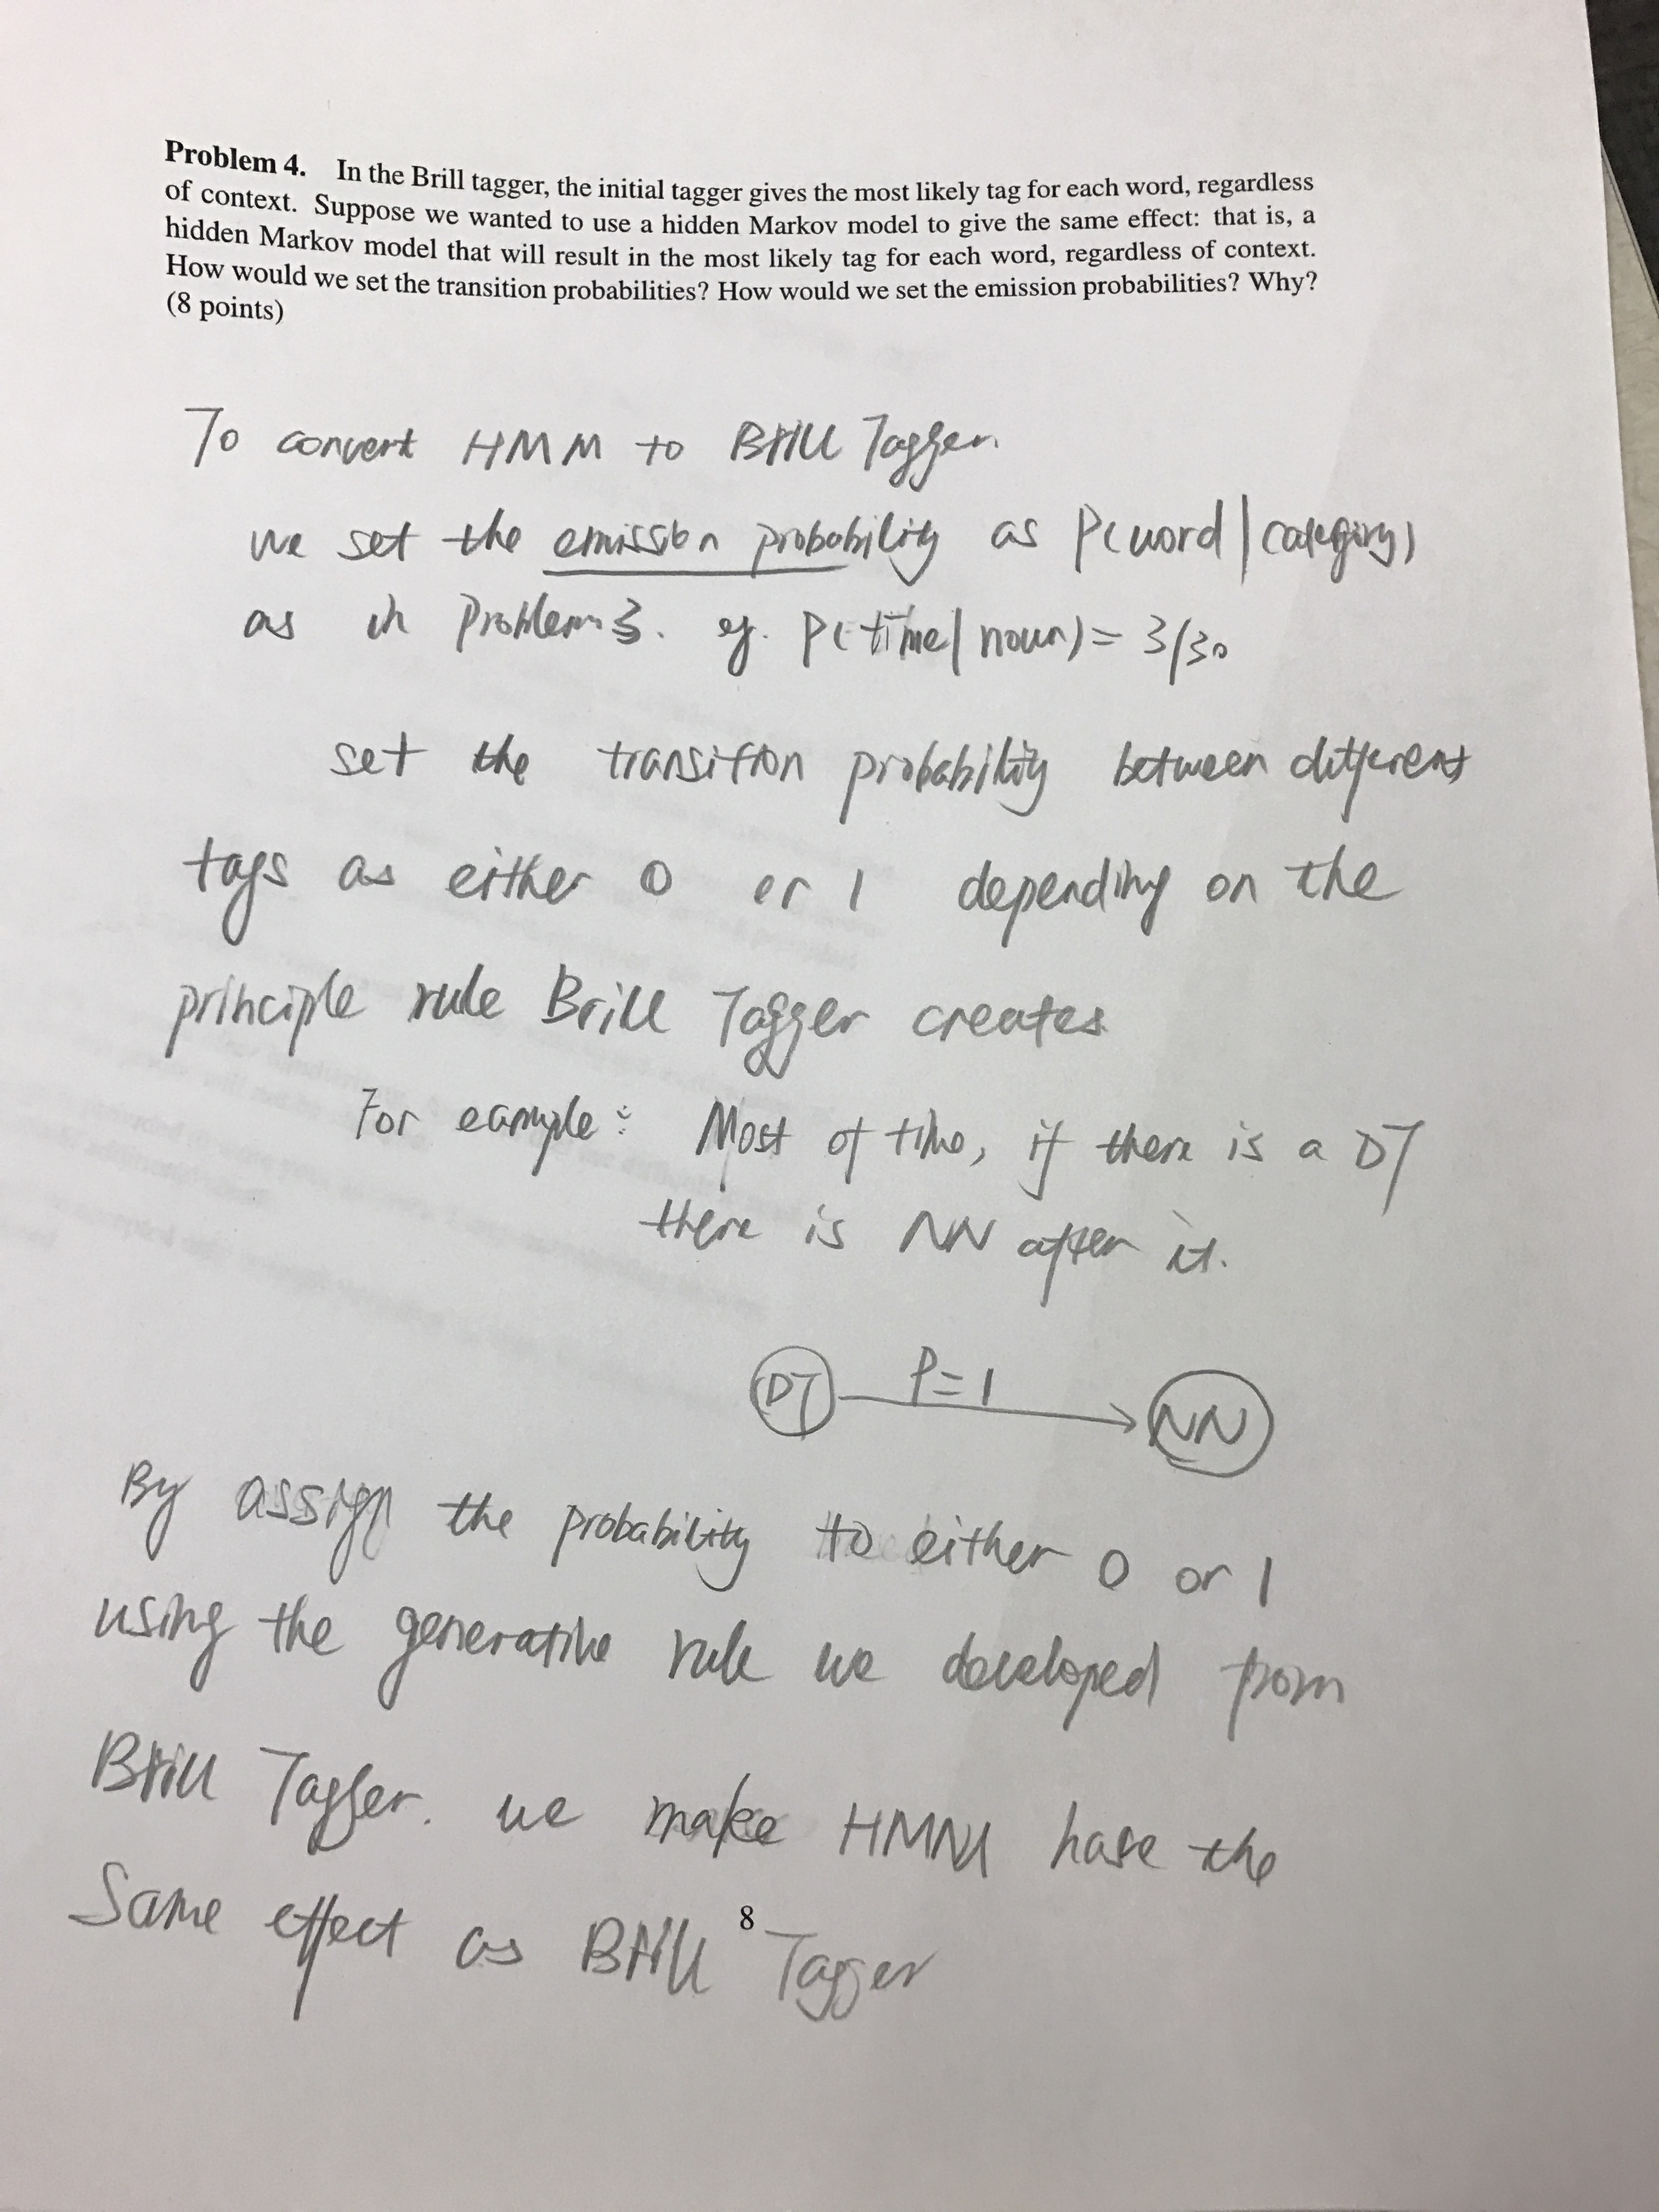 Problem 4. In the Brill tagger, the initial tagger gives the most likely tag for each word, regardless
of context. Suppose we wanted to use a hidden Markov model to give the same effect: that is, a
hidden Markov model that will result in the most likely tag for each word, regardless of context.
How would we set the transition probabilities? How would we set the emission probabilities? Why?
(8 points)
To convert HMM to Brill Tagger.
we set the emission probability as P(word | category)
as in Problem 3. eg. P(time | noun) = 3/30
set the transition probability between different
tags as either 0 or 1 depending on the
principle rule Brill Tagger creates
For eample: Most of time, if there is a DT
there is NN after it.
DT P=1 NN
By assign the probability to either 0 or 1
using the generative rule we developed from
Brill Tagger. we make HMM have the
Same effect as Brill Tagger
8